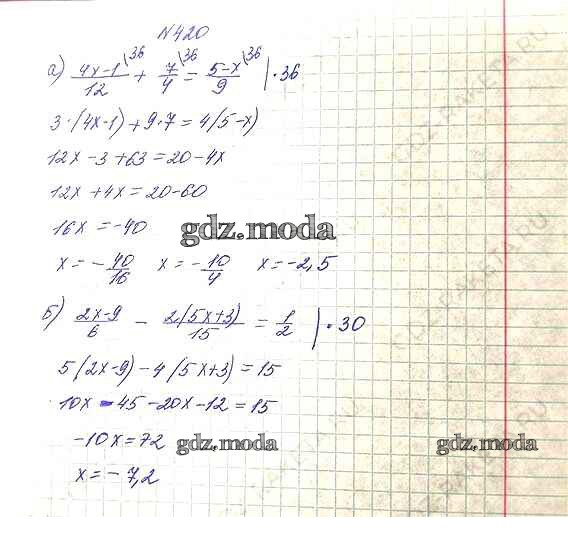 N420
а) (4x-1)/12 \36 + 7/4 \36 = (5-x)/9 \36 | · 36
3·(4x-1)+9·7=4(5-x)
12x-3+63=20-4x
12x+4x=20-60
16x=-40
x=-40/16 x=-10/4 x=-2,5
б) (2x-9)/6 - 2(5x+3)/15 = 1/2 | · 30
5(2x-9)-4(5x+3)=15
10x-45-20x-12=15
-10x=72
x=-7,2
gdz.moda
gdz.moda
gdz.moda
GDZ-RAKETA.RU
GDZ-RAKETA.RU
GDZ-RAKETA.RU